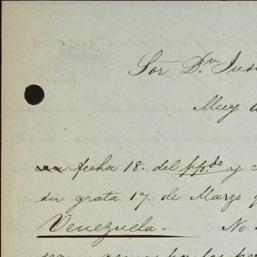 Sor. Dn Jus
Muy
fecha 18. del ppdo y
su grata 17. de Marzo
Venezuela.- No